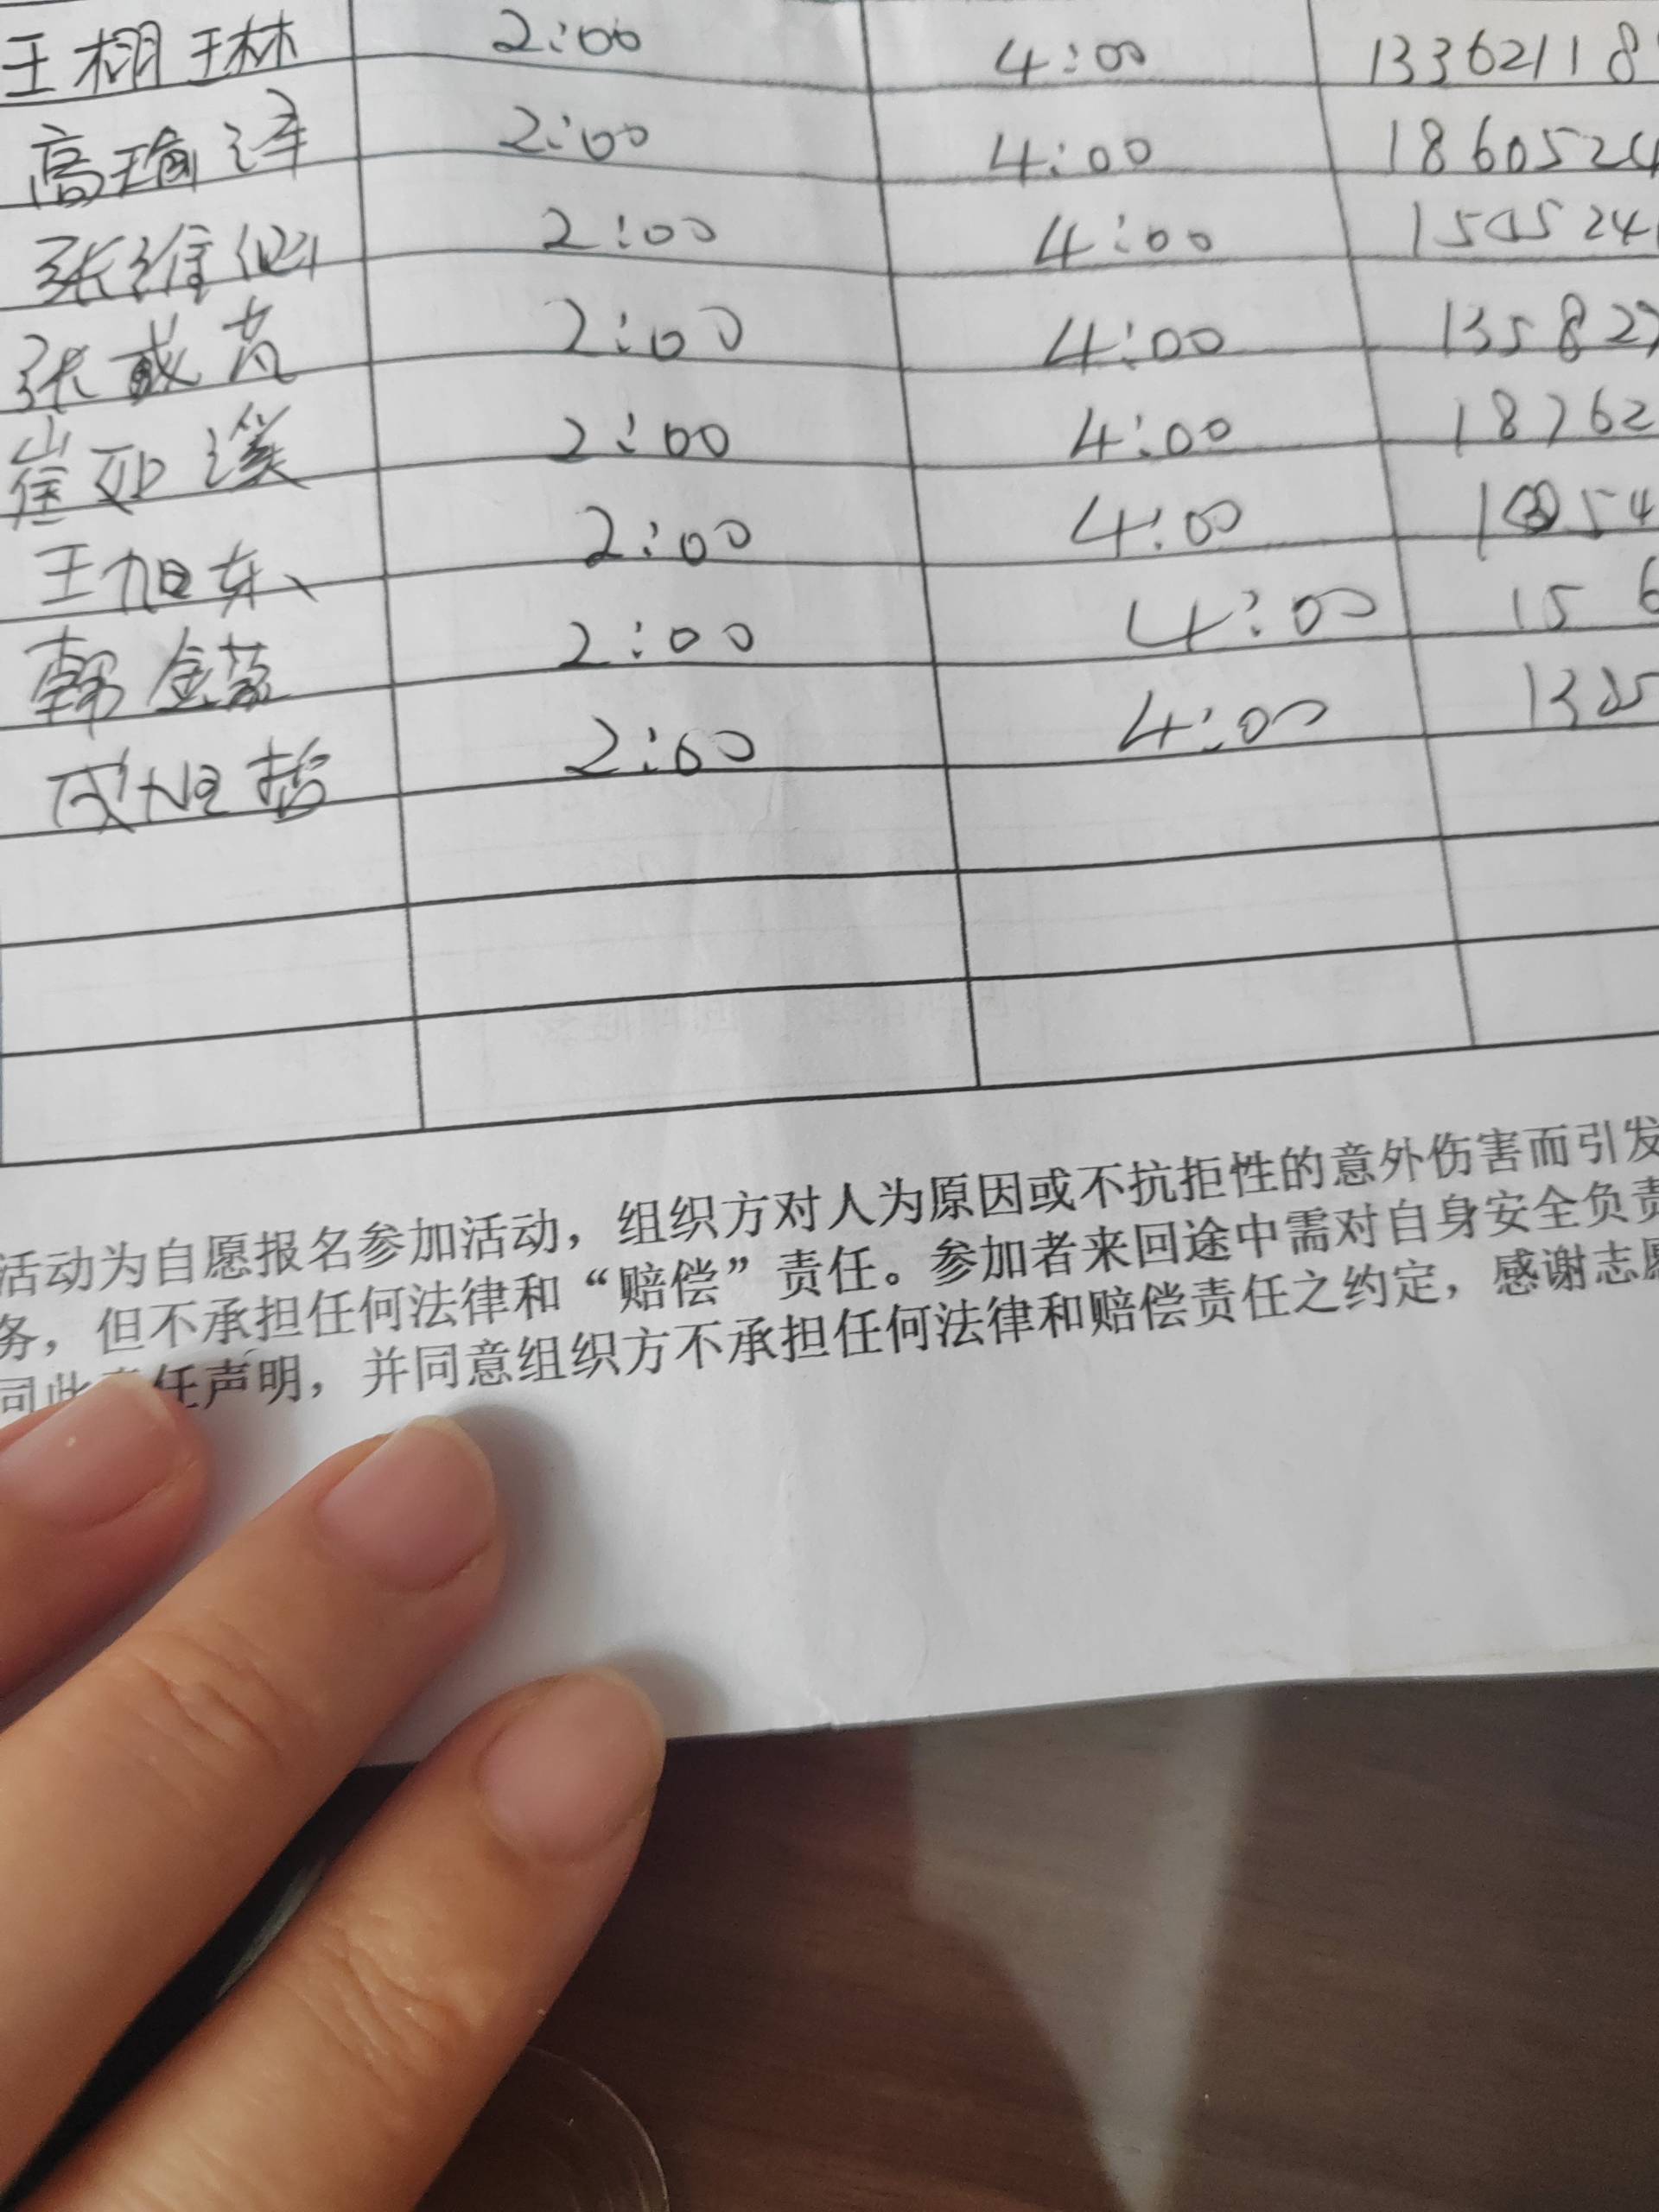 王栩琳 2:00 4:00 13362118
高瑜泽 2:00 4:00 1860524
张维仙 2:00 4:00 1505241
张芃 2:00 4:00 135827
崔亚溪 2:00 4:00 18762
王旭东 2:00 4:00 1 54
韩鑫 2:00 4:00 15 6
成旭哲 2:00 4:00 1305
活动为自愿报名参加活动，组织方对人为原因或不抗拒性的意外伤害而引发
务，但不承担任何法律和“赔偿”责任。参加者来回途中需对自身安全负责
同此责任声明，并同意组织方不承担任何法律和赔偿责任之约定，感谢志愿